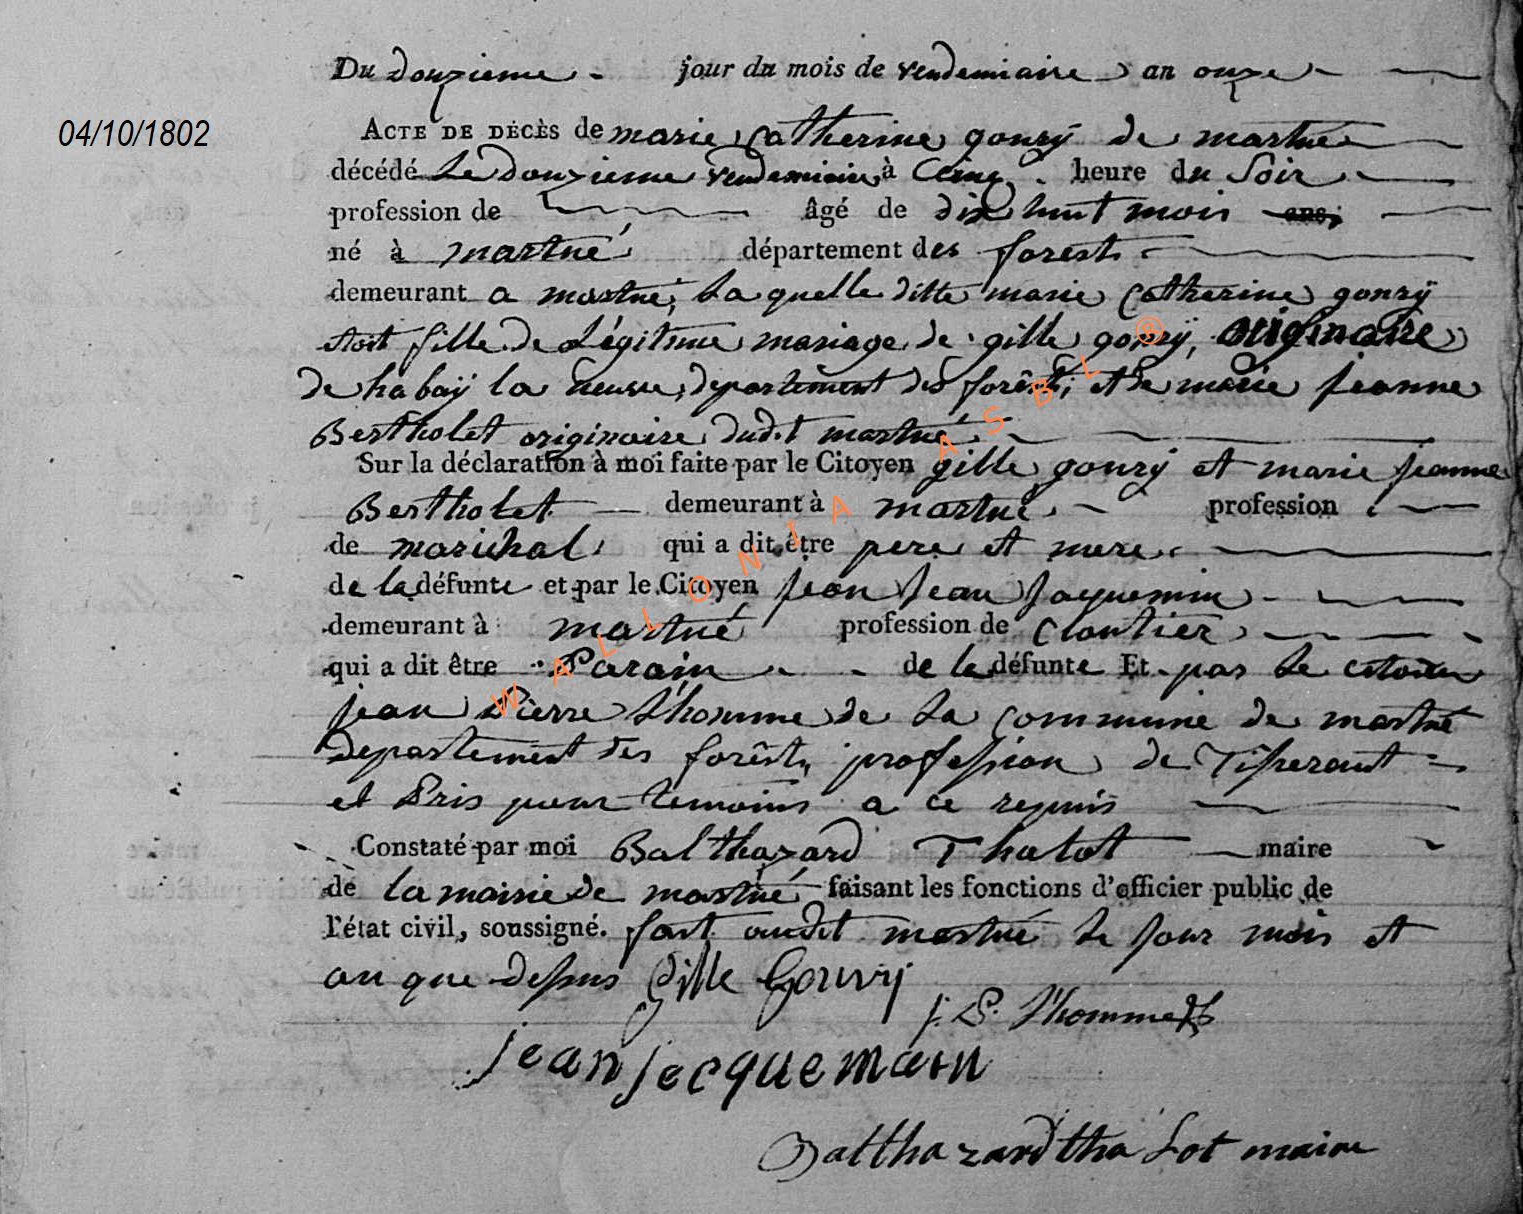 Du douzieme jour du mois de vendemiaire an onze
04/10/1802
ACTE DE DÉCÈS de marie Catherine gourÿ de martué
décédé Le Douzieme vendemiaire à Cinq heure du Soir
profession de âgé de dix huit mois ans
né à martué département des forests
demeurant a martué, La quelle ditte marie Catherine gourÿ
etoit fille de Légitime mariage de gille gourÿ, originaire
de habaÿ la neuve, departement des forêts, et de marie jeanne
Bertholet originaire dudit martué
Sur la déclaration à moi faite par le Citoyen gille gourÿ et marie jeanne
Bertholet demeurant à martué profession
de marichal qui a dit être pere et mere
de la défunte et par le Citoyen jean Jaquemin
demeurant à martué profession de Cloutier
qui a dit être Parain de la défunte Et par Le citoien
jean Pierre L'homme de La Commune de martué
departement des forêts, profession de Tisserant
et Pris pour temoins a ce requis
Constaté par moi Balthazard Thalot maire
de la mairie de martué faisant les fonctions d'officier public de
l'état civil, soussigné. fait audit martué Le jour mois et
an que dessus Gille Gourÿ
j. P. L'homme
jean jacquemain
Balthazard thalot maire
WALLONIA ASBL ®